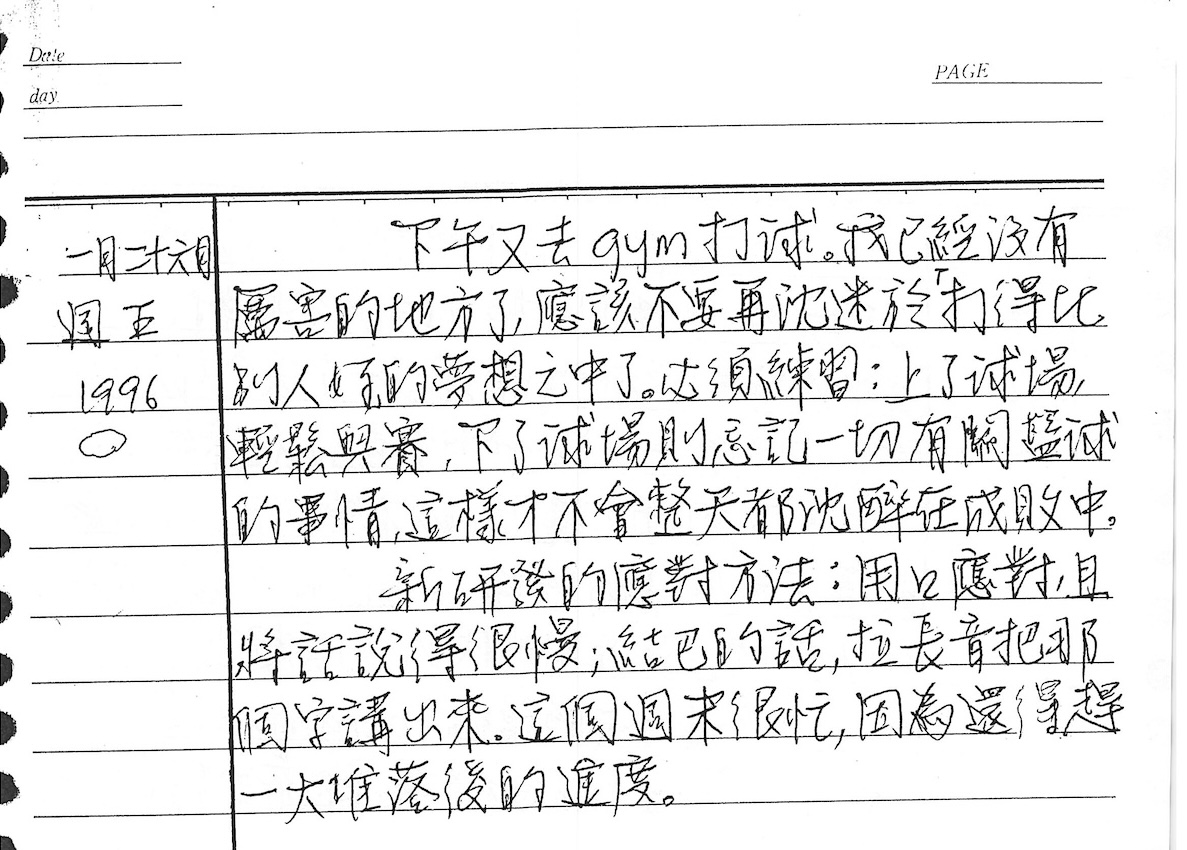 Date
day
PAGE
一月二十六日
週五
1996
下午又去gym打球。我已經沒有
厲害的地方了,應該不要再沈迷於「打得比
別人好」的夢想之中了。必須練習:上了球場,
輕鬆與賽,下了球場則忘記一切有關籃球
的事情,這樣才不會整天都沈醉在成敗中。
新研發的應對方法:用口應對,且
將話說得很慢;結巴的話,拉長音把那
個字講出來。這個週末很忙,因為還得趕
一大堆落後的進度。